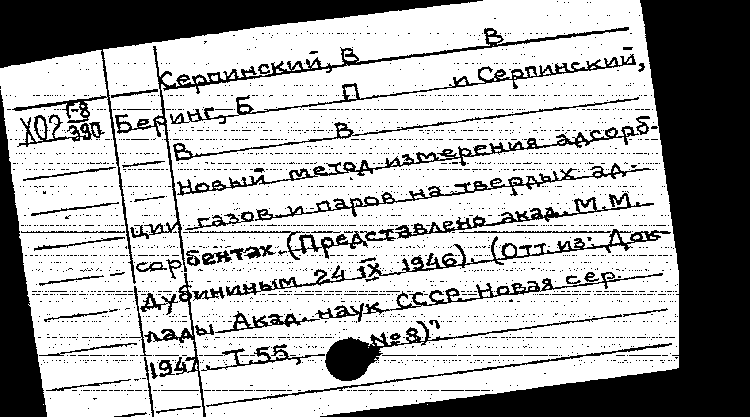 Серпинский, В В
Х02 Г-8/390 Беринг, Б П и Серпинский,
В В
Новый метод измерения адсорб-
ции газов и паров на твердых ад-
сорбентах. (Представлено акад. М.М.
Дубининым 24 IX 1946). (Отт. из: Док-
лады Акад. наук СССР. Новая сер.
1947. Т.55, №8)